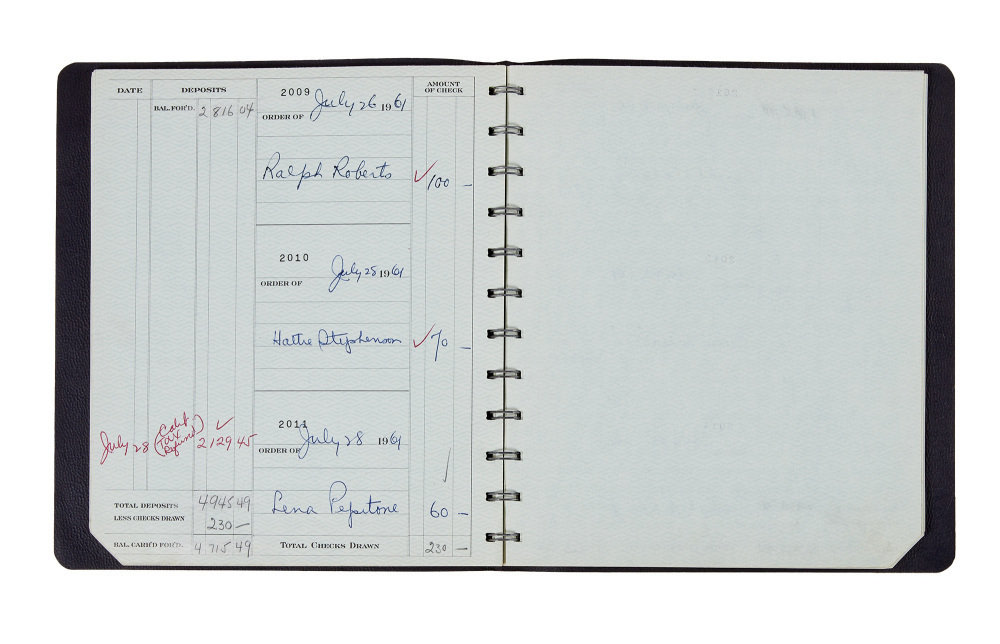 DATE DEPOSITS 2009 July 26 1961 AMOUNT OF CHECK
BAL. FOR'D. 2 816 04 ORDER OF
Ralph Roberts ✓ 100 —
2010 July 25 1961
ORDER OF
Hattie Stephenson ✓ 70 —
2011 July 28 1961
July 28 (Calif Tax Refund) 2129 45 ✓
ORDER OF
Lena Pepitone 60 —
TOTAL DEPOSITS 4945 49
LESS CHECKS DRAWN 230 —
BAL. CARR'D FOR'D. 4 715 49 TOTAL CHECKS DRAWN 230 —